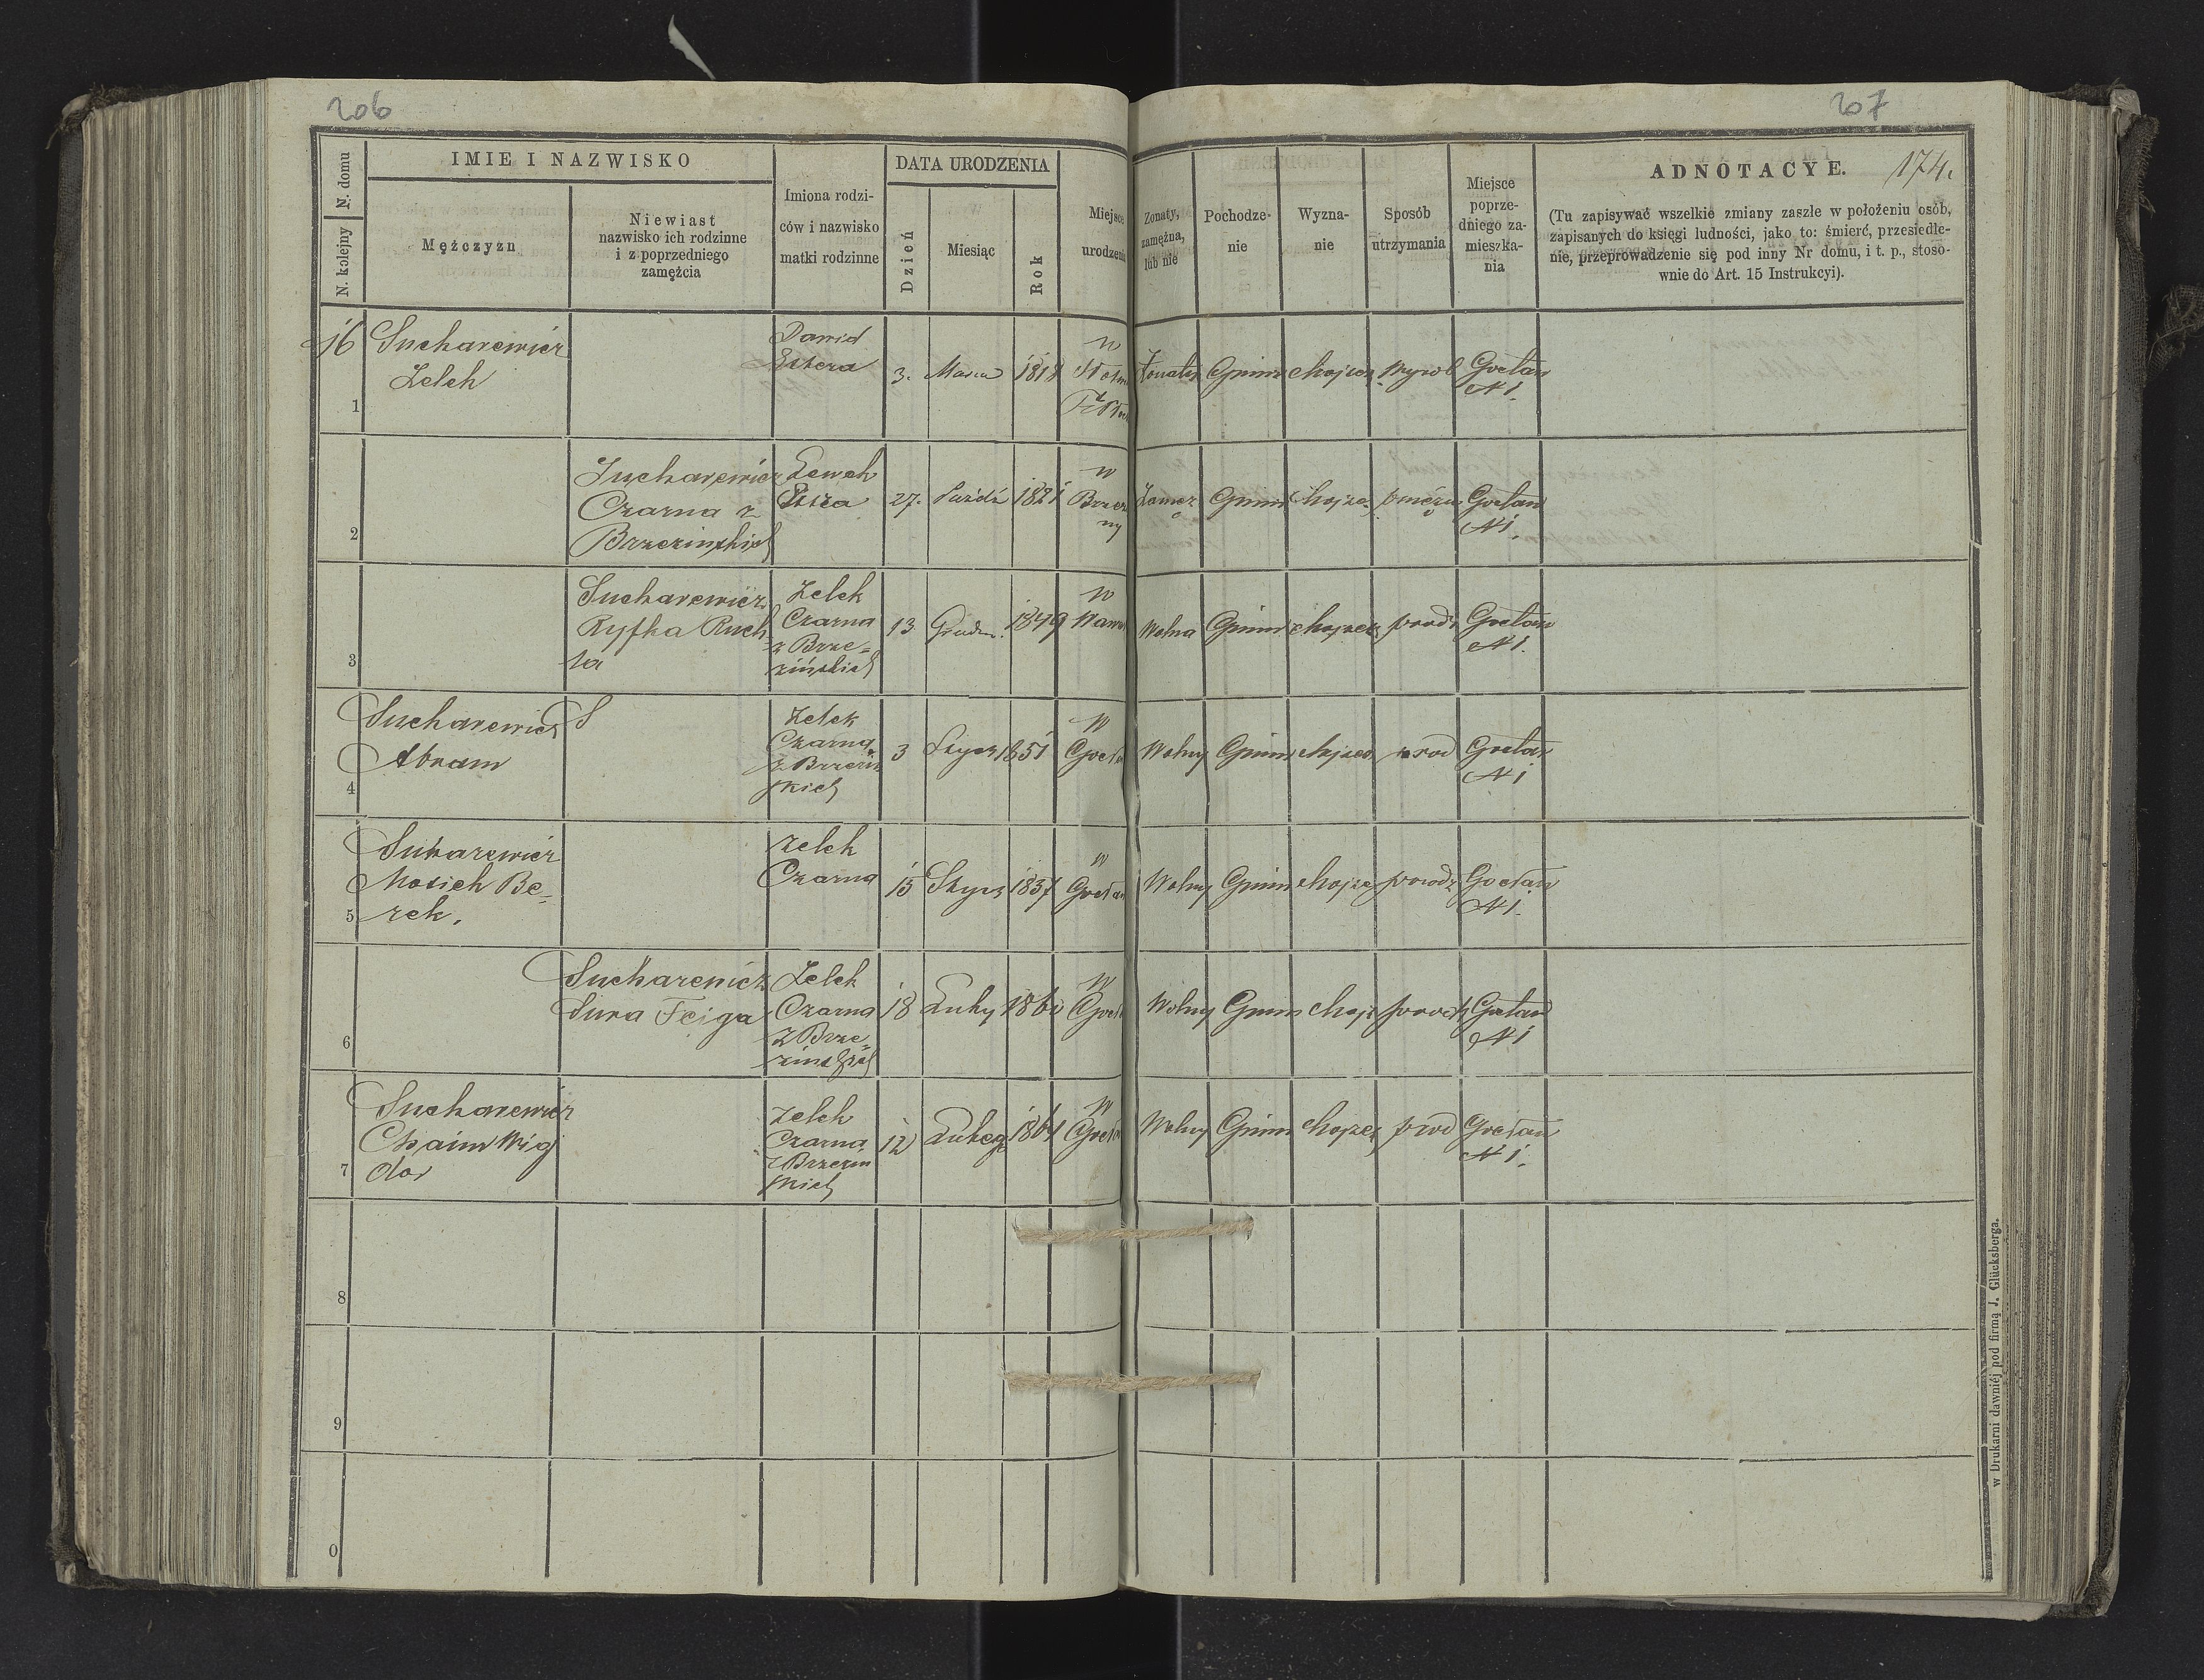 206
207
N. domu
N. kolejny
IMIE I NAZWISKO
Mężczyzn
Niewiast
nazwisko ich rodzinne
i z poprzedniego
zamężcia
Imiona rodzi-
ców i nazwisko
matki rodzinne
DATA URODZENIA
Dzień
Miesiąc
Rok
Miejsce
urodzenia
Zonaty,
zamężna,
lub nie
Pochodze-
nie
Wyzna-
nie
Sposób
utrzymania
Miejsce
poprze-
dniego za-
mieszka-
nia
ADNOTACYE. 174.
(Tu zapisywać wszelkie zmiany zaszłe w położeniu osób,
zapisanych do księgi ludności, jako to: śmierć, przesiedle-
nie, przeprowadzenie się pod inny Nr domu, i t. p., stoso-
wnie do Art. 15 Instrukcyi).
16
1
Sucharewicz
Zelek
Dawid
Estera
3. 1818
w
Gocław
N 1.
2
Sucharewicz
Czarna z
Brzezinskich
Lewek
27. Paźdź 1821
w
Brzezi
ny
Gocław
N 1.
3
Sucharewicz
Ryfka Ruch
la
Zelek
Czarna
z Brze=
zińskich
13 Grudn. 1849
w
Wolna
Gocław
N 1.
4
Sucharewicz S
Abram
Zelek
Czarna
z Brzezin
skich
3 Stycz 1851
w
Gocła
Wolny
Gocław
N 1
5
Suharewicz
Mosiek Be=
rek.
Zelek
Czarna
15 Stycz 1857
w
Gocław
Wolny
Gocław
N 1.
6
Sucharewicz
Sura Feiga
Zelek
Czarna
z Brze=
zinskich
18 Luty
w
Gocł
Wolny
Gocław
N 1
7
Sucharewicz
Chaim Wig
dor
Zelek
Czarna
z Brzezin
skich
12
w
Gocła
Wolny
Gocław
N 1.
8
9
0
w Drukarni dawniéj pod firmą J. Glücksberga.